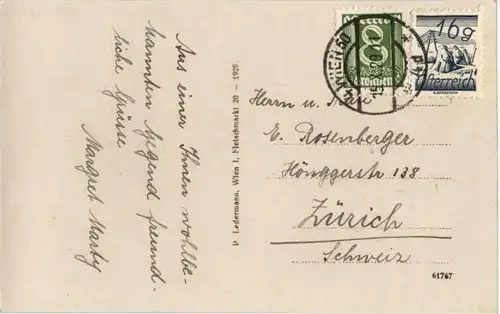 Aus einer Ihnen wohlbe-
kannten Gegend freund-
liche Grüsse
Margret Marty
P. Ledermann, Wien I, Fleischmarkt 20 – 1929.
WIEN 50
8
GROSCHEN
16g
Österreich
Herrn u.
E. Rosenberger
Hönggerstr 138
Zürich
Schweiz
61767